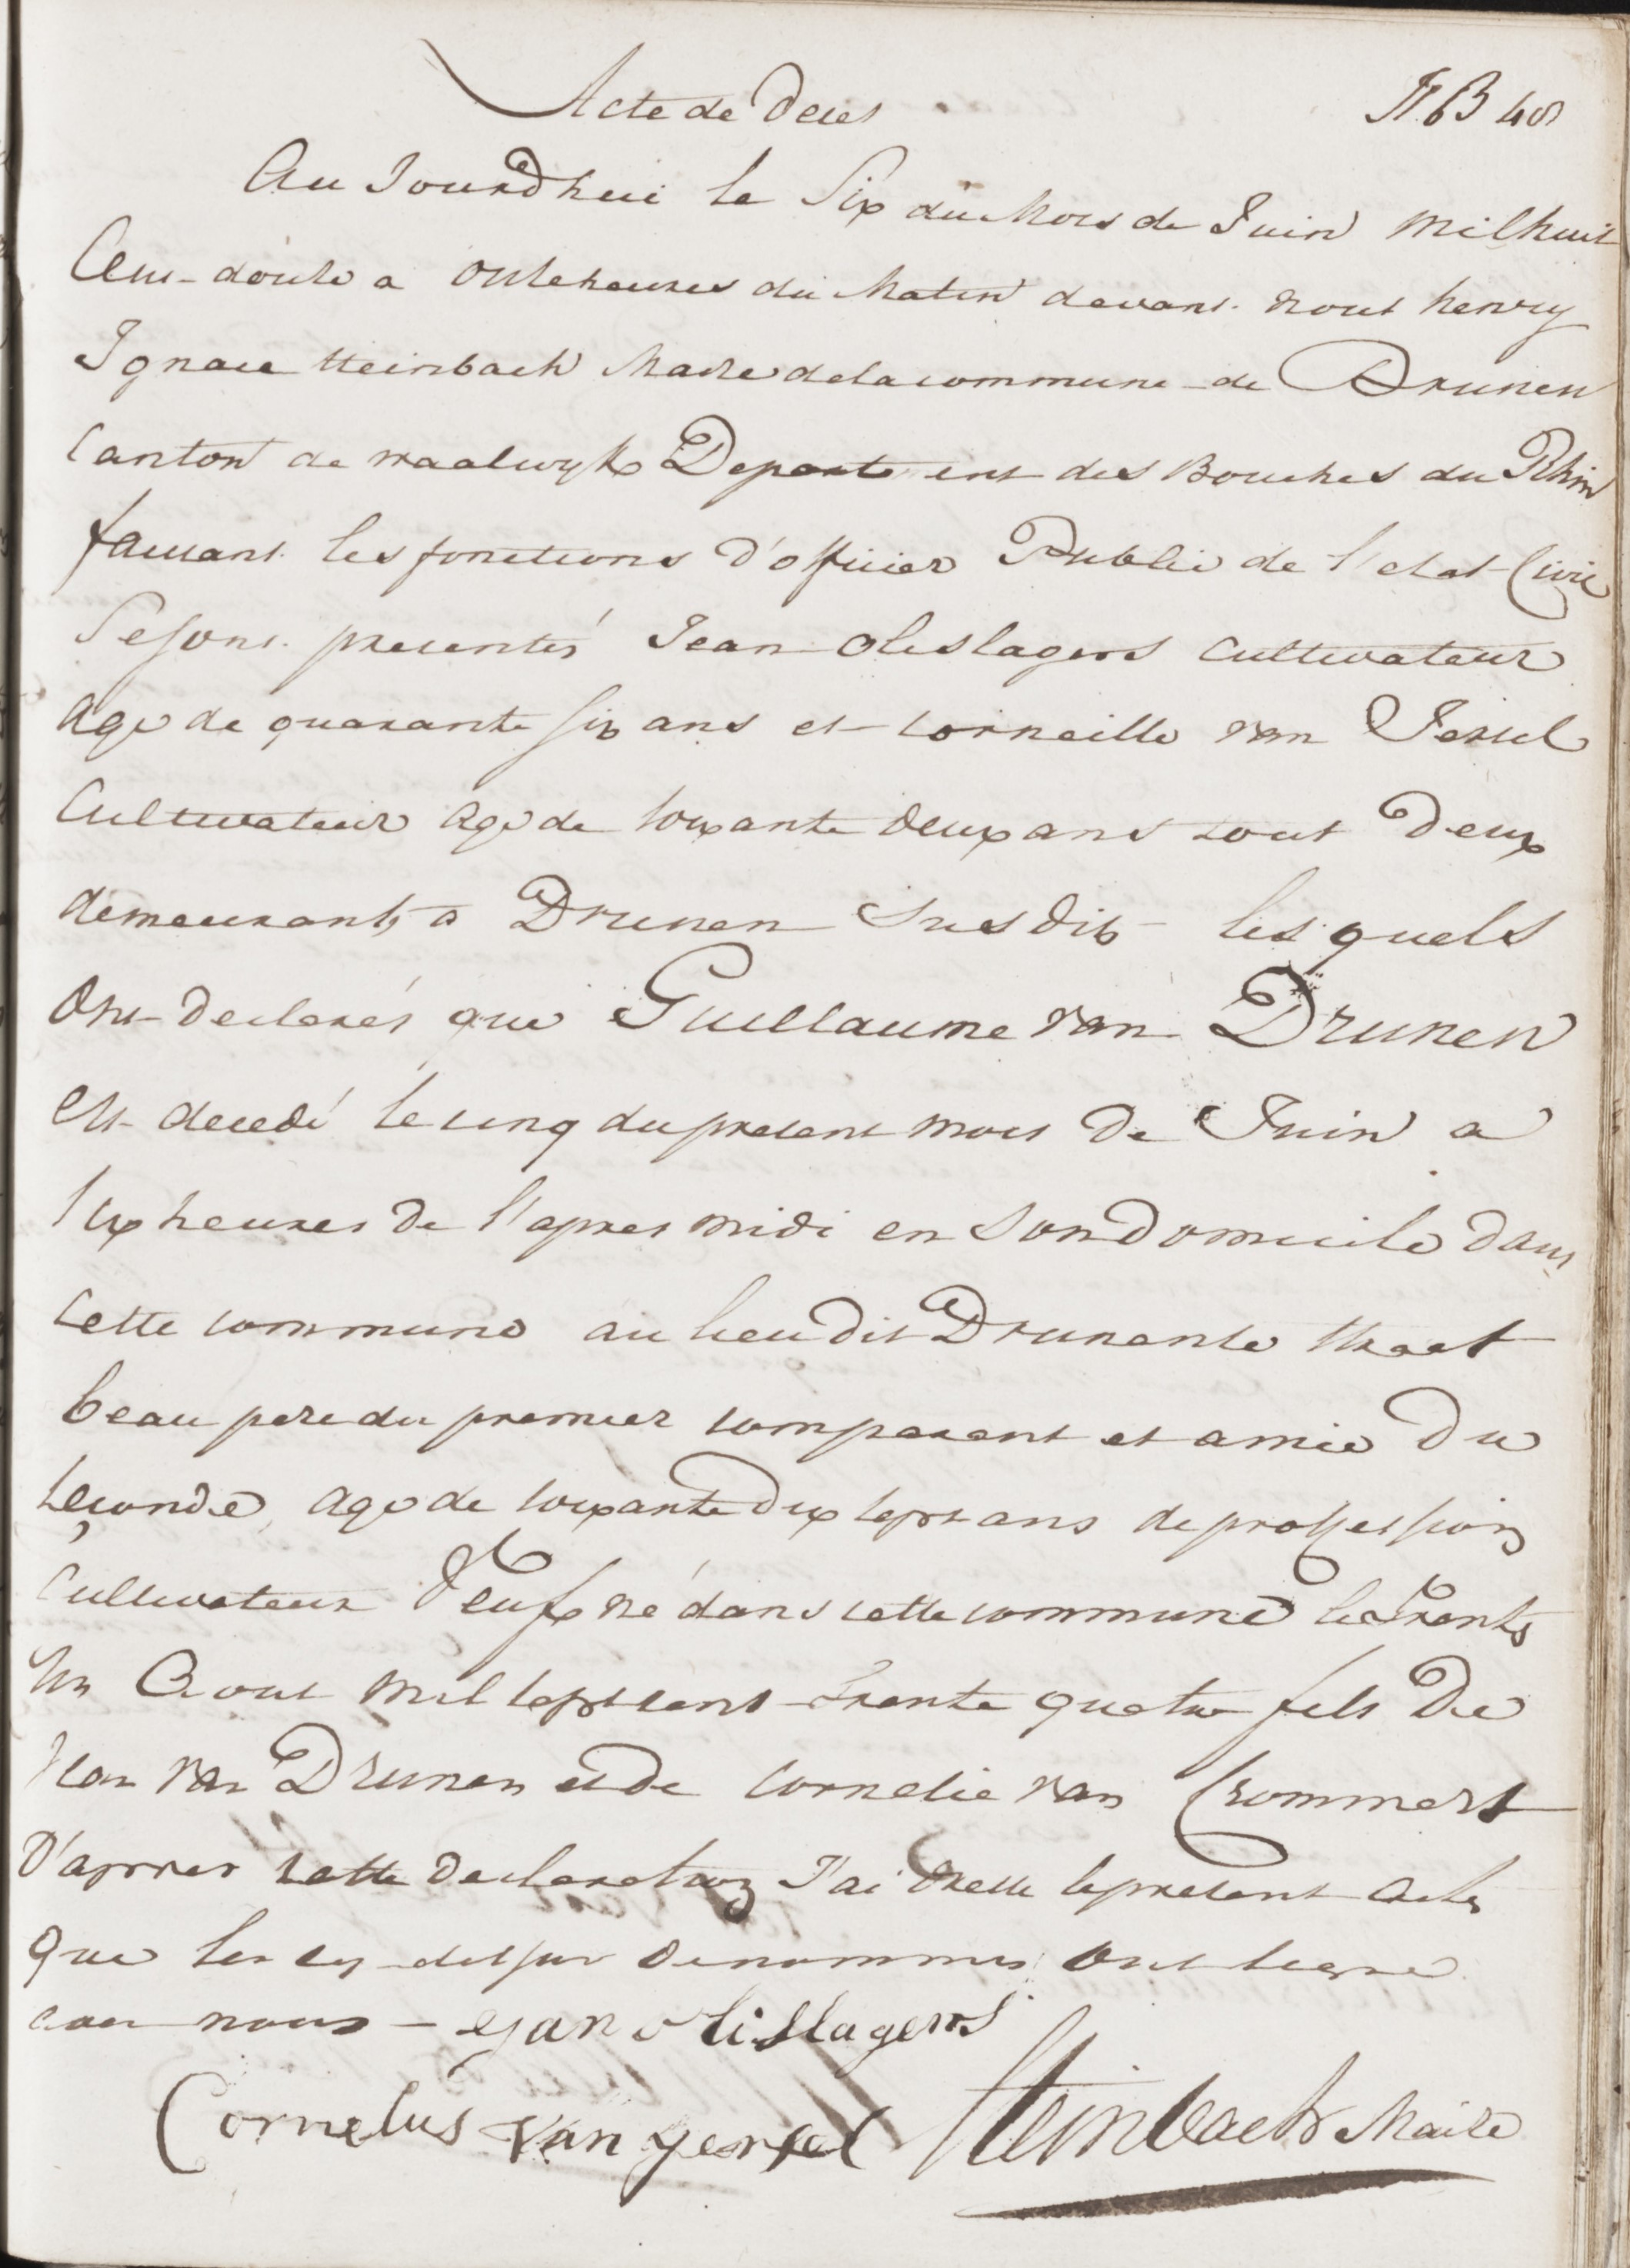 Acte de Deces
N. B 48
Au Jourdhui le Six du Mois de Juin milhuit
Cent-douze a onzeheures du Matin devant nous henry
Ignace Steinbach Maire delacommune de Drunen
Canton de waalwyk Departement des Bouches du Rhin
faisant les fonctions d'officier Public de l'etat Civil
Sesont presentés Jean Oleslagers Cultivateur
Agé de quarante six ans et Corneille van Iersel
Cultivateur agé de soixante deux ans tout Deux
demeurant a Drunen Susdit les quels
Ont Declarés que Guillaume van Drunen
est decedé le cinq dupresent mois De Juin a
six heures De l'apres midi en Son Domicile dans
Cette commune au lieu Dit Drunense straat
beau pere du premier comparant et amie Du
seconde, agé de soixante Dix sept ans de proffession
Cultivateur Veuf né dans cette commune le trente
un Aout mil septcent trente quatre fils De
Jean van Drunen et De Cornelie van Crommert
D'appres cette Declaration J'ai Dresse lepresent Acte
Que les cy-dessus Denommes ont signé
avec nous - Jan olislagers
Cornelus van yersel Steinbach Maire